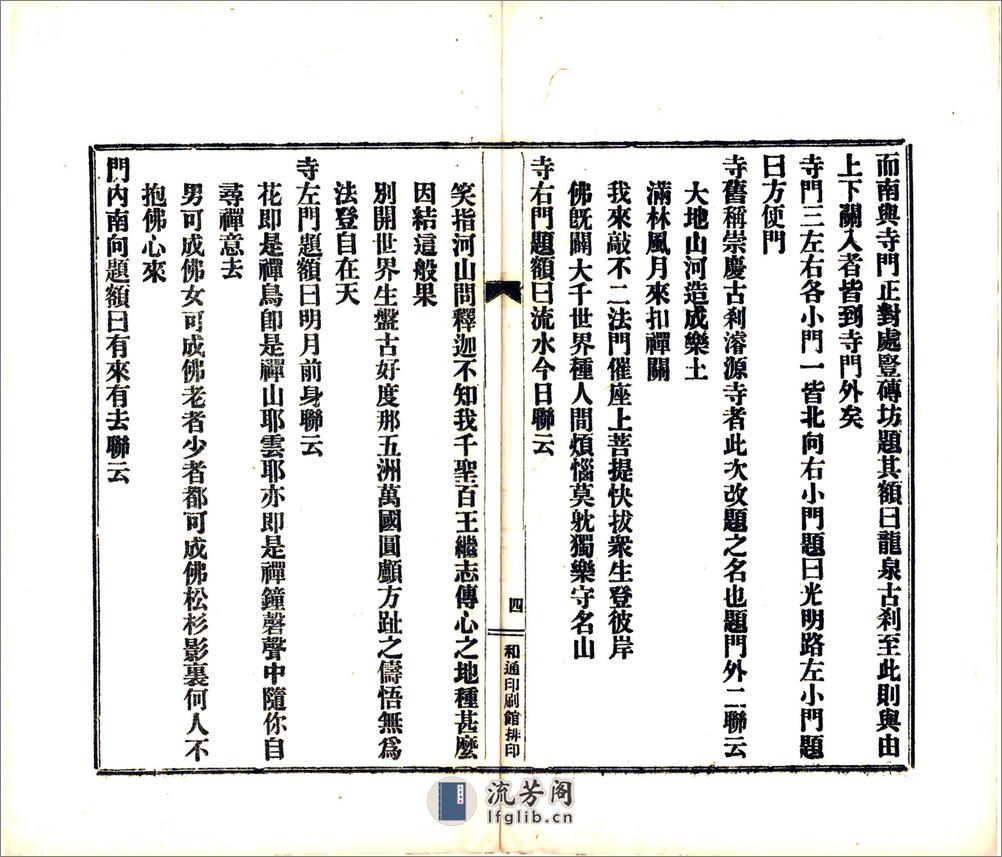 而南與寺門正對處豎磚坊題其額曰龍泉古刹至此則與由
上下關入者皆到寺門外矣
寺門三左右各小門一皆北向右小門題曰光明路左小門題
曰方便門
寺舊稱崇慶古刹濬源寺者此次改題之名也題門外二聯云
大地山河造成樂土
滿林風月來扣禪關
我來敲不二法門催座上菩提快拔衆生登彼岸
佛旣闢大千世界種人間煩惱莫躭獨樂守名山
寺右門題額曰流水今日聯云
四
和通印刷館排印
笑指河山問釋迦不知我千聖百王繼志傳心之地種甚麽
因結這般果
別開世界生盤古好度那五洲萬國圓顱方趾之儔悟無爲
法登自在天
寺左門題額曰明月前身聯云
花即是禪鳥卽是禪山耶雲耶亦即是禪鐘磬聲中隨你自
尋禪意去
男可成佛女可成佛老者少者都可成佛松杉影裏何人不
抱佛心來
門內南向題額曰有來有去聯云
流芳阁
lfglib.cn